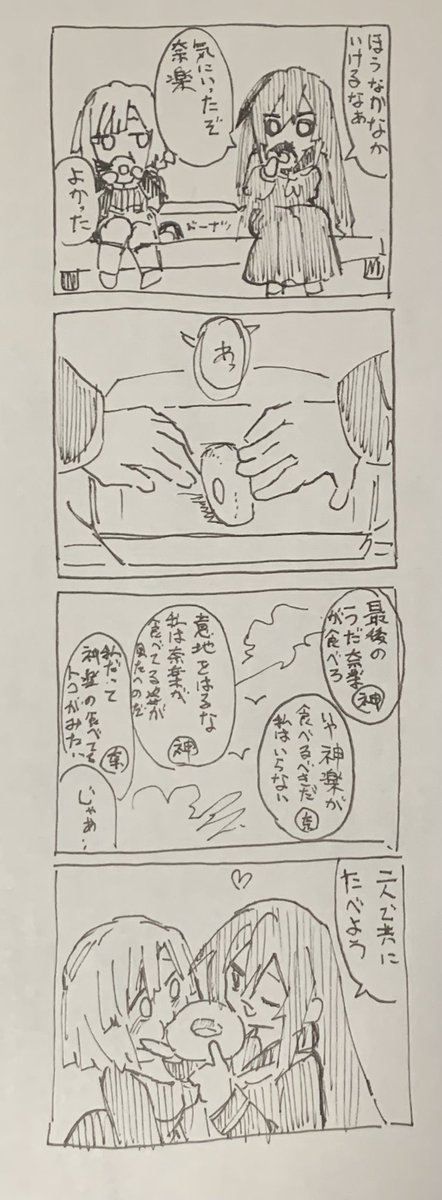 ほうなかなか
いけるなぁ
気にいったぞ
奈楽
よかった
ドーナツ
あっ
最後の
1つだ奈楽
が食べろ
神
いや神楽が
食べるべきだ
私はいらない
奈
意地をはるな
私は奈楽が
食べてる姿が
見たいのだ
神
私だって
神楽の食べてる
トコがみたい
奈
じゃあ…
二人で共に
たべよう